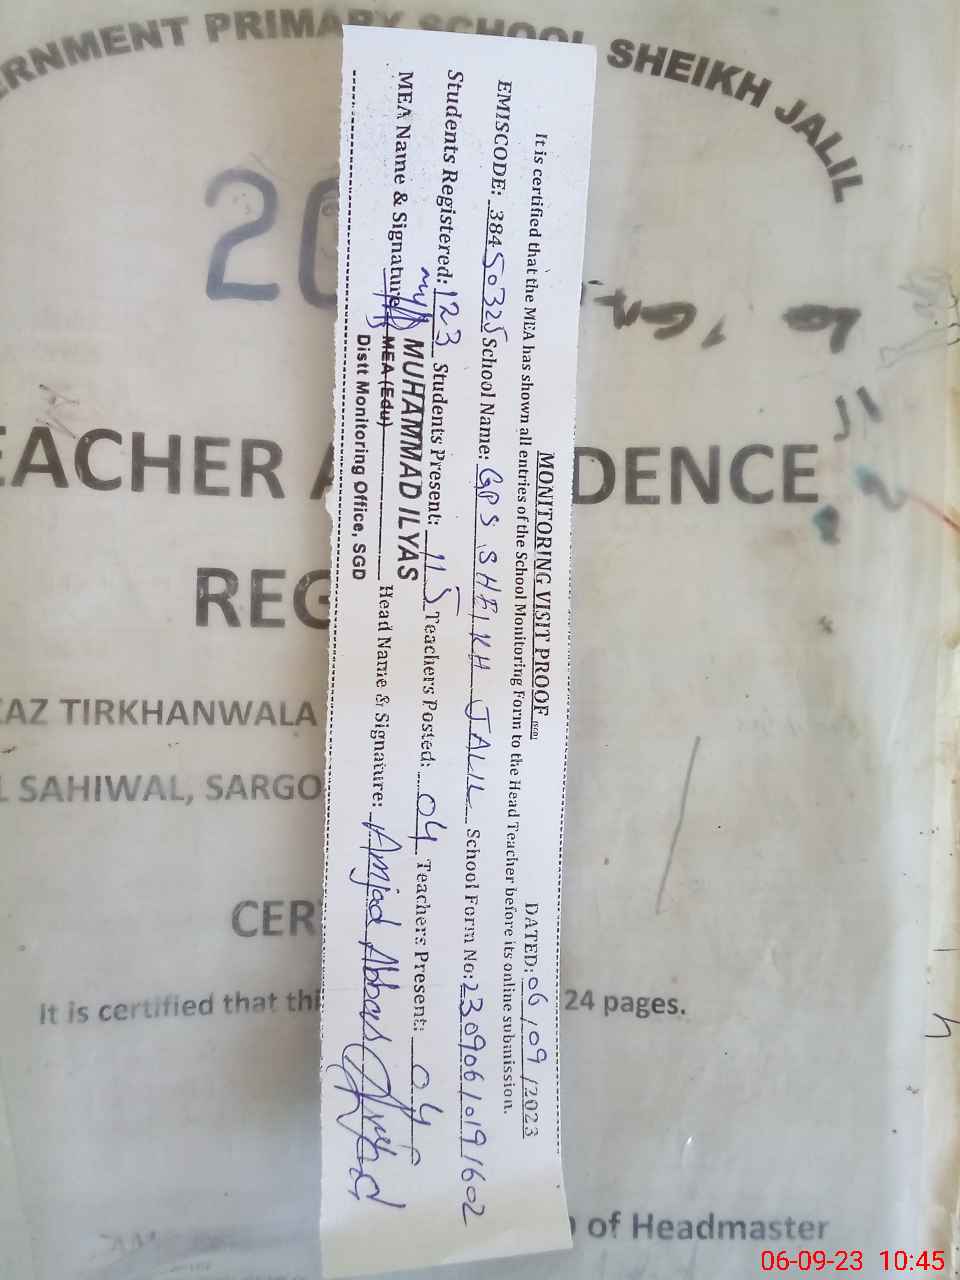 ERNMENT PRIMARY SCHOOL SHEIKH JALIL
20
EACHER A DENCE
REG
AZ TIRKHANWALA
L SAHIWAL, SARGO
CER
It is certified that thi 24 pages.
of Headmaster
MONITORING VISIT PROOF DATED: 06/09/2023
It is certified that the MEA has shown all entries of the School Monitoring Form to the Head Teacher before its online submission.
EMISCODE: 38450325 School Name: GPS SHEIKH JALIL School Form No: 23090610191602
Students Registered: 123 Students Present: 115 Teachers Posted: 04 Teachers Present: 04
MEA Name & Signature Head Name & Signature: Amjad Abbas
MUHAMMAD ILYAS
MEA (Edu)
Distt Monitoring Office, SGD
06-09-23 10:45